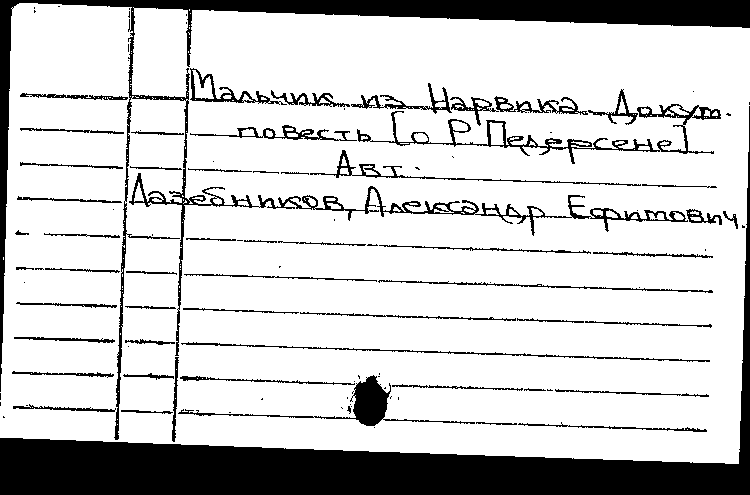 Мальчик из Нарвика. Докум.
повесть [о Р. Педерсене]
Авт.
Лазебников, Александр Ефимович.